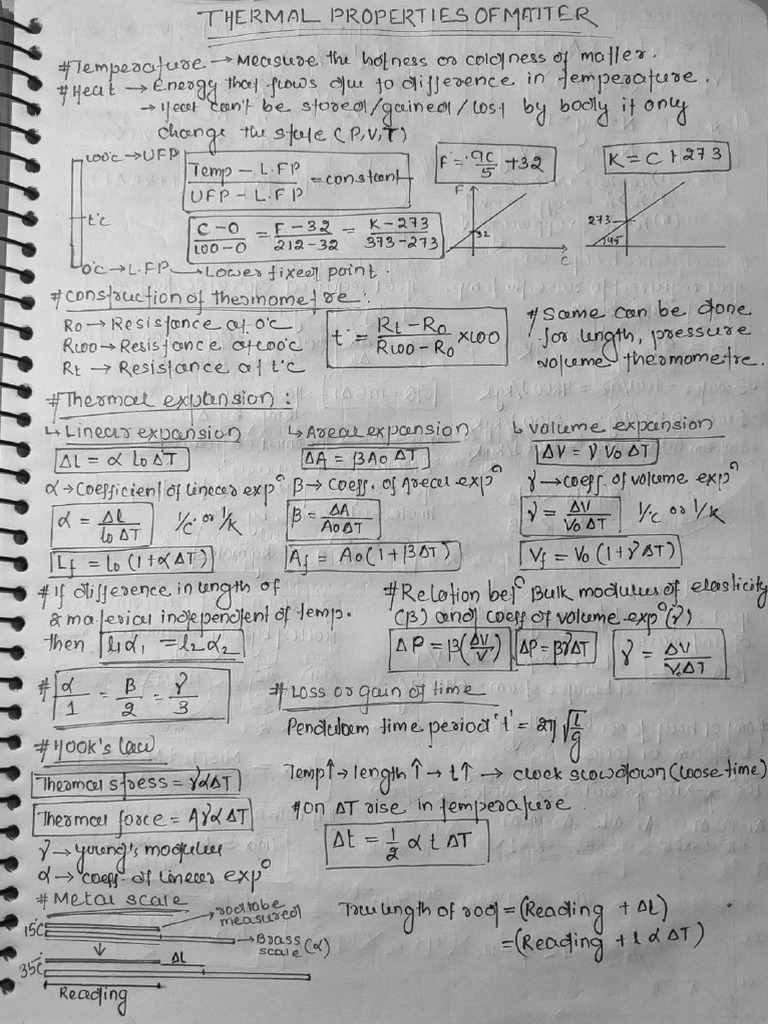 THERMAL PROPERTIES OF MATTER
#Temperature → Measure the hotness or coldness of matter.
#Heat → Energy that flows due to difference in temperature.
→ Heat can't be stored/gained/lost by body it only
change the state (P,V,T)
100°c → UFP
t°c
0°c → L.FP → Lower fixed point.
Temp - L.FP / UFP - L.FP = constant
C-0 / 100-0 = F-32 / 212-32 = K-273 / 373-273
F = 9C/5 + 32
F
32
C
K = C + 273
273
45
#Construction of thermometre:
R0 → Resistance at 0°c
R100 → Resistance at 100°c
Rt → Resistance at t°c
t = Rt - R0 / R100 - R0 × 100
# Same can be done
for length, pressure
volume thermometre.
#Thermal expansion:
↳ Linear expansion
ΔL = α l0 ΔT
α → Coefficient of linear expⁿ
α = Δl / l0 ΔT 1/°c or 1/K
Lf = l0 (1+αΔT)
↳ Areal expansion
ΔA = βA0 ΔT
β → Coeff. of Areal expⁿ
β = ΔA / A0ΔT
Af = A0(1+βΔT)
↳ volume expansion
ΔV = γ V0 ΔT
γ → coeff. of volume expⁿ
γ = ΔV / V0 ΔT 1/°c or 1/K
Vf = V0 (1+γΔT)
# If difference in length of
2 material independent of temp.
then l1α1 = l2α2
#Relation betⁿ Bulk modulus of elasticity
(β) and coeff of volume expⁿ(γ)
ΔP = β(ΔV/V) ΔP = βγΔT γ = ΔV / V0ΔT
# α/1 = β/2 = γ/3
# Loss or gain of time
Pendulam time period 't' = 2π √l/g
Temp↑ → length↑ → t↑ → clock slow down (loose time)
#on ΔT rise in temperature.
Δt = 1/2 α t ΔT
# Hook's law
Thermal stress = YαΔT
Thermal force = AYαΔT
Y → young's modulus
α → coeff. of linear expⁿ
# Metal scale
rod to be
measured
15°C
Brass
scale (α)
ΔL
35°C
Reading
True length of rod = (Reading + ΔL)
= (Reading + l α ΔT)